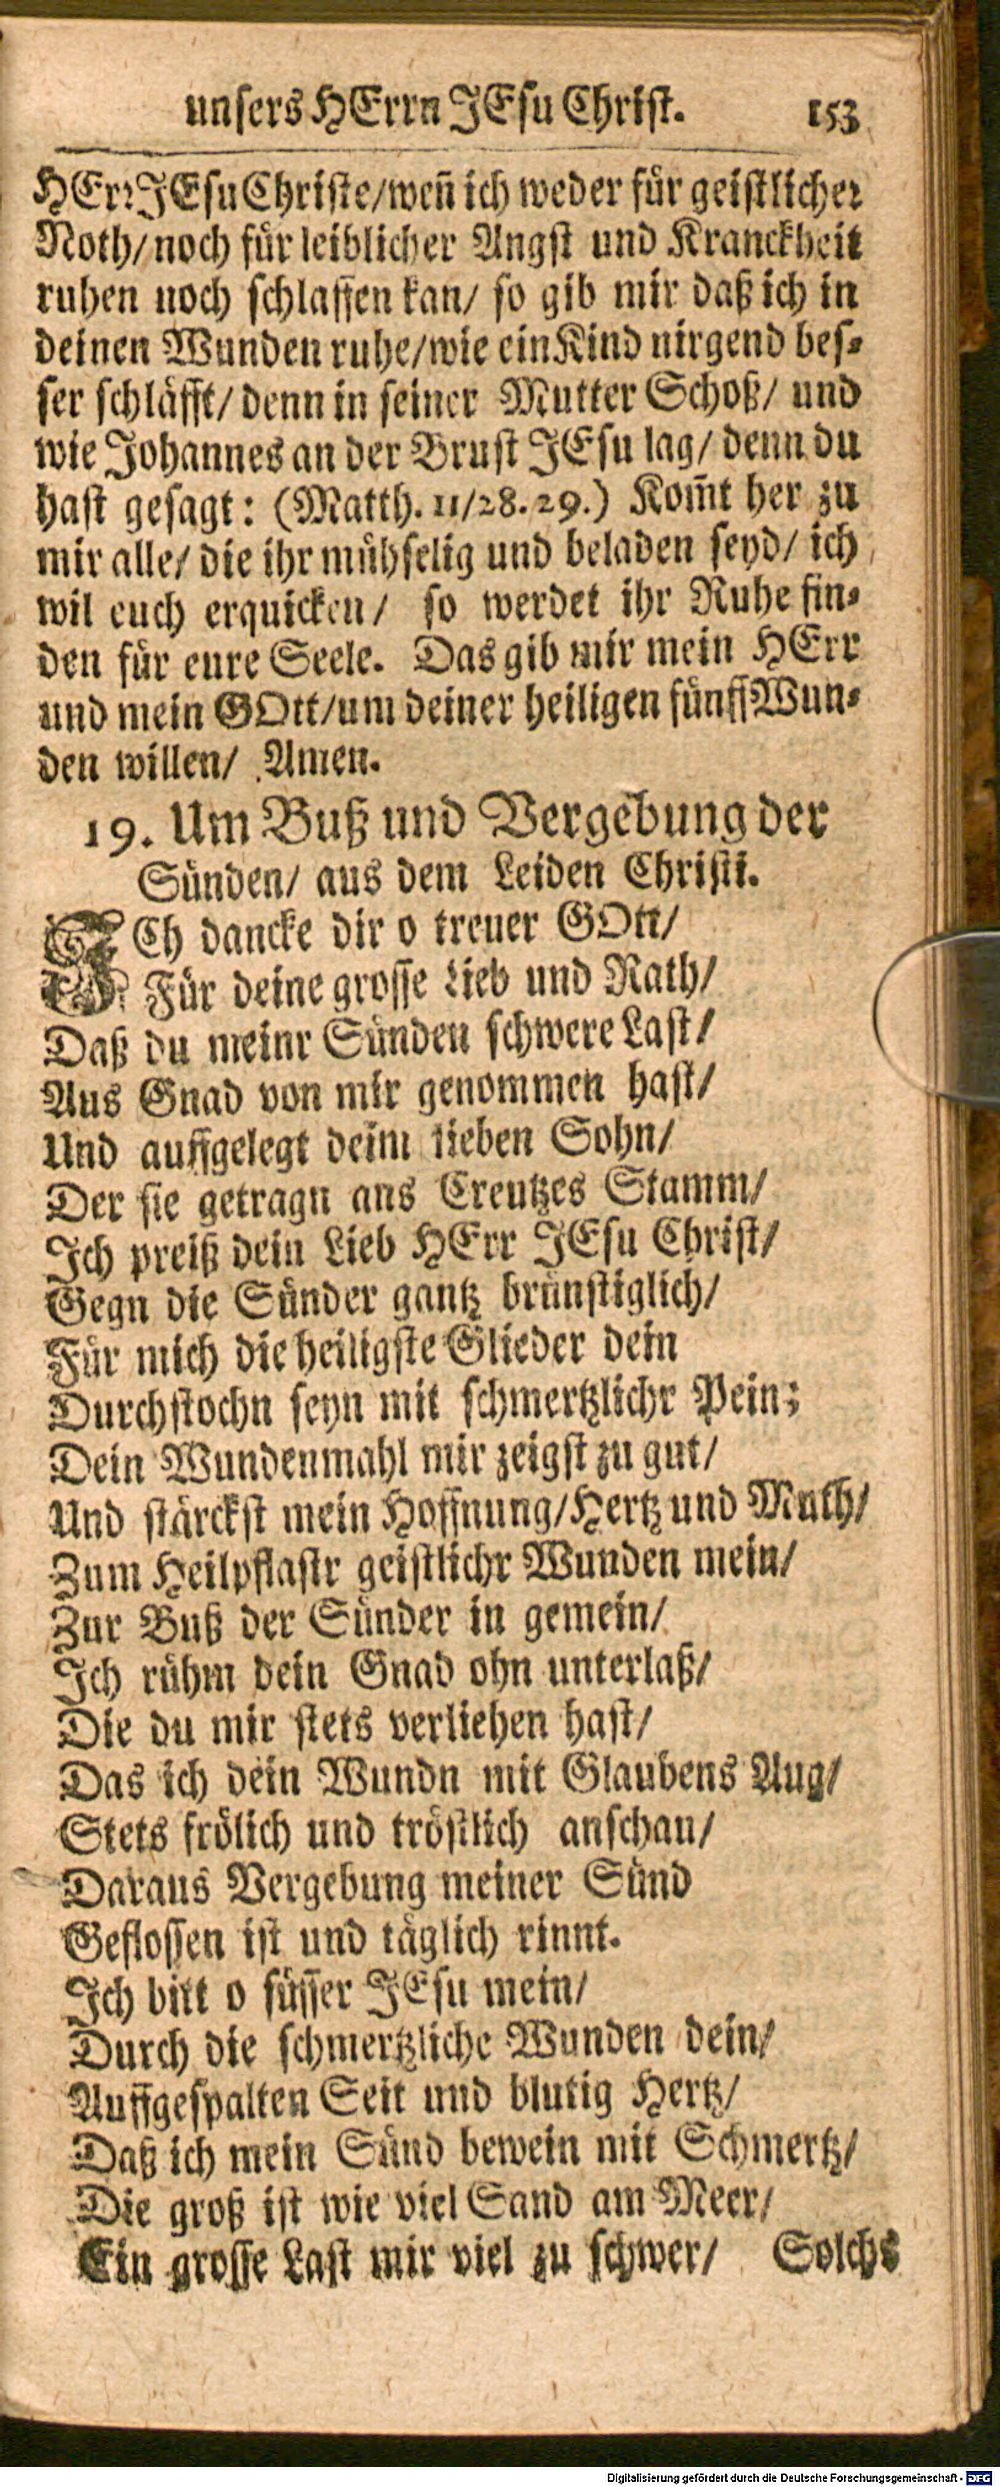 unsers HErrn JEsu Christ. 153
HErr JEsu Christe/weñ ich weder für geistlicher
Noth/noch für leiblicher Angst und Kranckheit
ruhen noch schlaffen kan/ so gib mir daß ich in
deinen Wunden ruhe/wie ein Kind nirgend bes-
ser schläfft/ denn in seiner Mutter Schoß/ und
wie Johannes an der Brust JEsu lag/ denn du
hast gesagt: (Matth. 11/28. 29.) Kom̃t her zu
mir alle/ die ihr mühselig und beladen seyd/ ich
wil euch erquicken/ so werdet ihr Ruhe fin-
den für eure Seele. Das gib mir mein HErr
und mein GOtt/um deiner heiligen fünff Wun-
den willen/ Amen.
19. Um Buß und Vergebung der
Sünden/ aus dem Leiden Christi.
ICh dancke dir o treuer GOtt/
Für deine grosse Lieb und Rath/
Daß du meinr Sünden schwere Last/
Aus Gnad von mir genommen hast/
Und auffgelegt deim lieben Sohn/
Der sie getragn ans Creutzes Stamm/
Ich preiß dein Lieb HErr JEsu Christ/
Gegn die Sünder gantz brünstiglich/
Für mich die heiligste Glieder dein
Durchstochn seyn mit schmertzlichr Pein;
Dein Wundenmahl mir zeigst zu gut/
Und stärckst mein Hoffnung/Hertz und Muth/
Zum Heilpflastr geistlichr Wunden mein/
Zur Buß der Sünder in gemein/
Ich rühm dein Gnad ohn unterlaß/
Die du mir stets verliehen hast/
Das ich dein Wundn mit Glaubens Aug/
Stets frölich und tröstlich anschau/
Daraus Vergebung meiner Sünd
Geflossen ist und täglich rinnt.
Ich bitt o süsser JEsu mein/
Durch die schmertzliche Wunden dein/
Auffgespalten Seit und blutig Hertz/
Daß ich mein Sünd bewein mit Schmertz/
Die groß ist wie viel Sand am Meer/
Ein grosse Last mir viel zu schwer/ Solchs
Digitalisierung gefördert durch die Deutsche Forschungsgemeinschaft - DFG